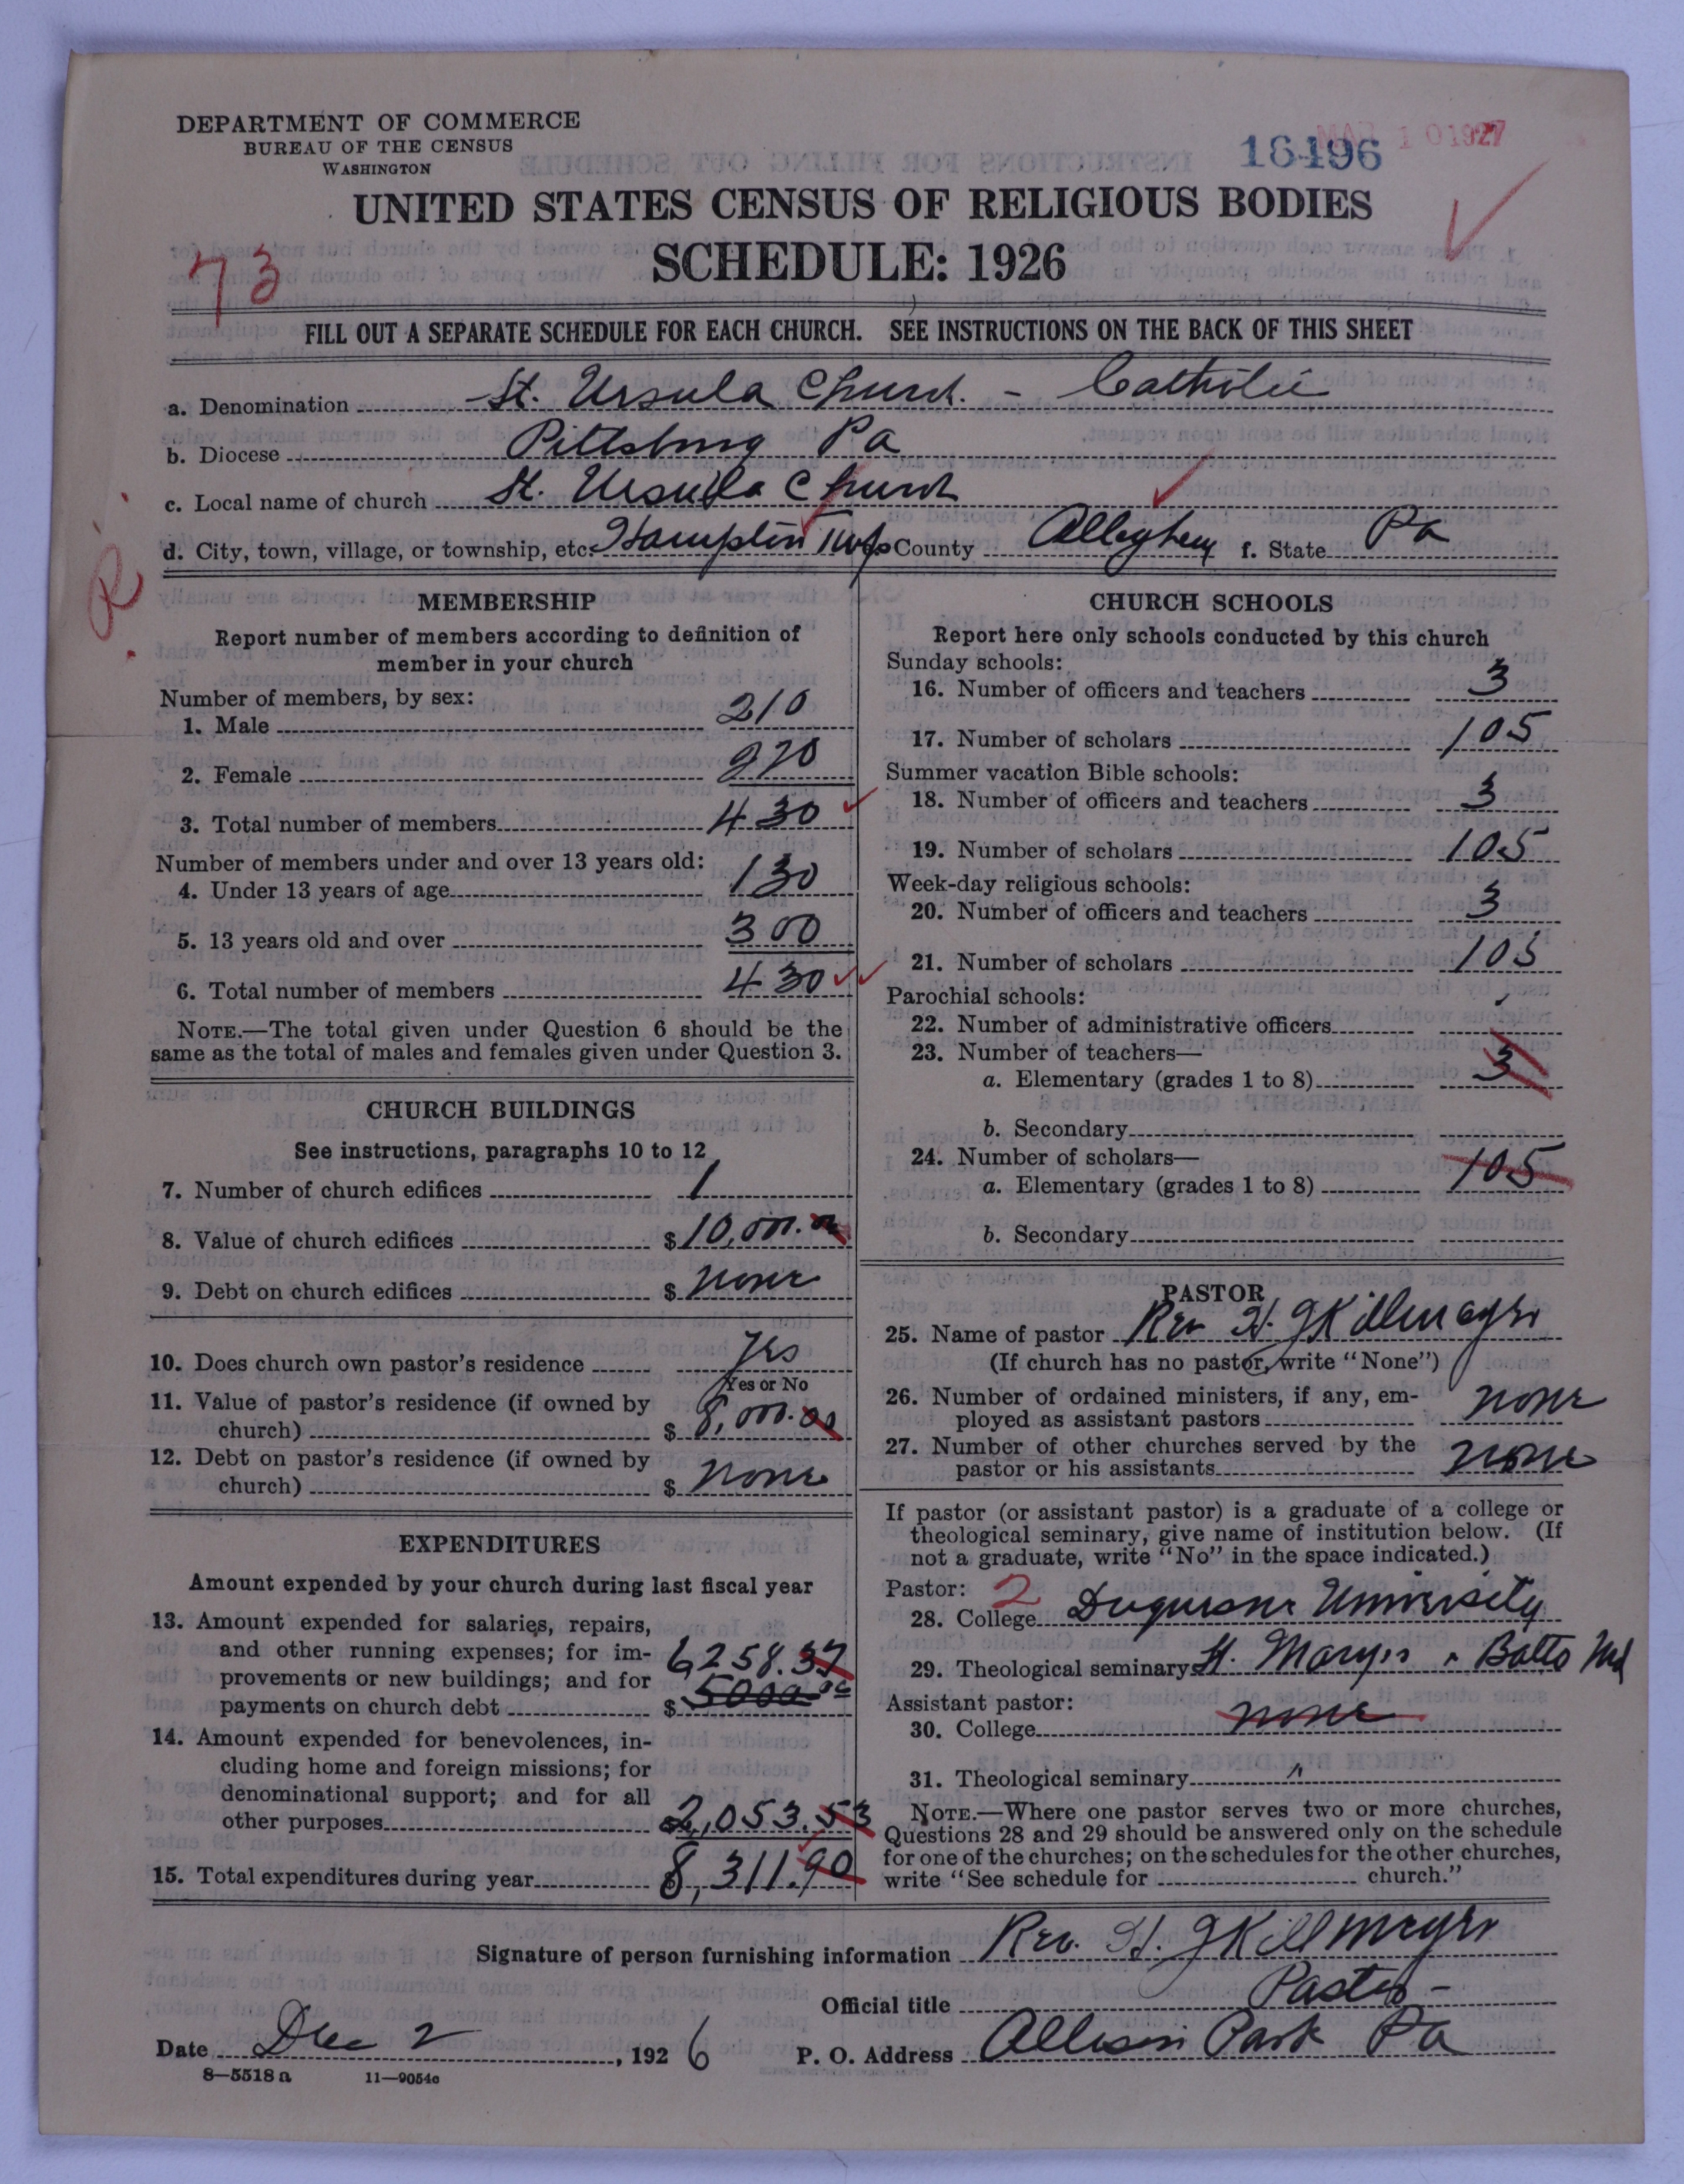 DEPARTMENT OF COMMERCE
BUREAU OF THE CENSUS
WASHINGTON
MAR 10 1927
16496
UNITED STATES CENSUS OF RELIGIOUS BODIES
SCHEDULE: 1926
73
FILL OUT A SEPARATE SCHEDULE FOR EACH CHURCH. SEE INSTRUCTIONS ON THE BACK OF THIS SHEET
a. Denomination St. Ursula Church. - Catholic
b. Diocese Pittsburg Pa
c. Local name of church St. Ursula Church
d. City, town, village, or township, etc. Hamplin Twp County Allegheny f. State Pa
R.
MEMBERSHIP
Report number of members according to definition of
member in your church
Number of members, by sex:
1. Male 210
2. Female 220
3. Total number of members 430
Number of members under and over 13 years old:
4. Under 13 years of age 130
5. 13 years old and over 300
6. Total number of members 430
NOTE.—The total given under Question 6 should be the
same as the total of males and females given under Question 3.
CHURCH BUILDINGS
See instructions, paragraphs 10 to 12
7. Number of church edifices 1
8. Value of church edifices $10,000.00
9. Debt on church edifices $ none
10. Does church own pastor's residence Yes
Yes or No
11. Value of pastor's residence (if owned by
church) $ 8,000.00
12. Debt on pastor's residence (if owned by
church) $ none
EXPENDITURES
Amount expended by your church during last fiscal year
13. Amount expended for salaries, repairs,
and other running expenses; for im-
provements or new buildings; and for 6258.37
payments on church debt $ 5000.00
14. Amount expended for benevolences, in-
cluding home and foreign missions; for
denominational support; and for all
other purposes 2,053.53
15. Total expenditures during year 8,311.90
CHURCH SCHOOLS
Report here only schools conducted by this church
Sunday schools:
16. Number of officers and teachers 3
17. Number of scholars 105
Summer vacation Bible schools:
18. Number of officers and teachers 3
19. Number of scholars 105
Week-day religious schools:
20. Number of officers and teachers 3
21. Number of scholars 105
Parochial schools:
22. Number of administrative officers
23. Number of teachers—
a. Elementary (grades 1 to 8) 3
b. Secondary
24. Number of scholars—
a. Elementary (grades 1 to 8) 105
b. Secondary
PASTOR
25. Name of pastor Rev H. J Killmeyer
(If church has no pastor, write "None")
26. Number of ordained ministers, if any, em-
ployed as assistant pastors none
27. Number of other churches served by the
pastor or his assistants none
If pastor (or assistant pastor) is a graduate of a college or
theological seminary, give name of institution below. (If
not a graduate, write "No" in the space indicated.)
Pastor: 2
28. College Duquesne University
29. Theological seminary St. Mary's . Balto Md
Assistant pastor:
30. College none
31. Theological seminary "
NOTE.—Where one pastor serves two or more churches,
Questions 28 and 29 should be answered only on the schedule
for one of the churches; on the schedules for the other churches,
write "See schedule for church."
Signature of person furnishing information Rev. H. J Killmeyer
Official title Pastor -
Date Dec 2, 1926 P. O. Address Allison Park Pa
8—5518 a 11—9054c